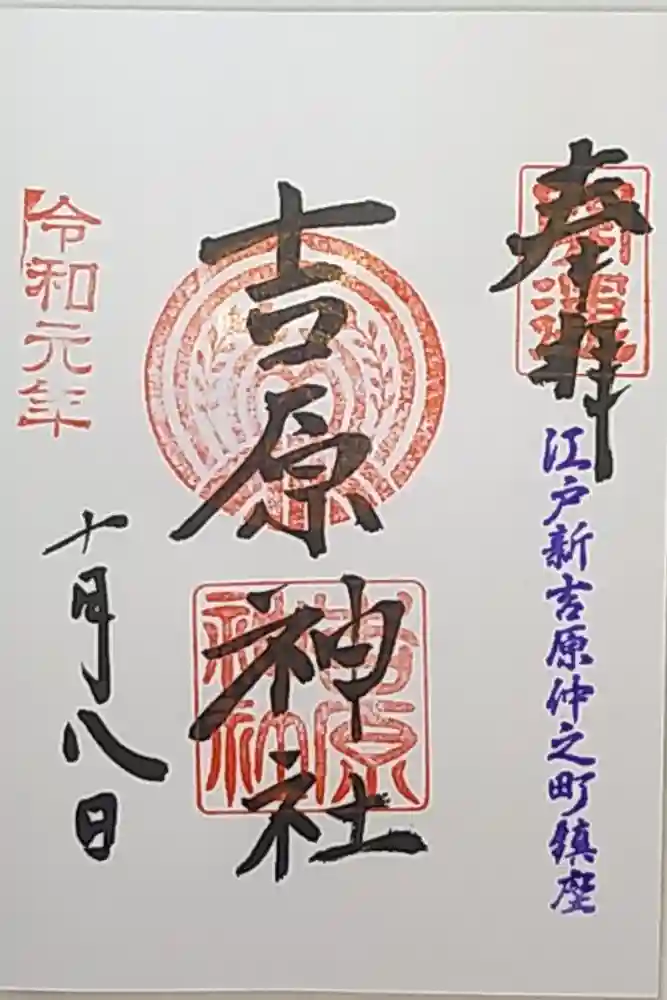 奉拝
江戸新吉原仲之町鎮座
吉原神社
吉原
神社
令和元年
十月八日